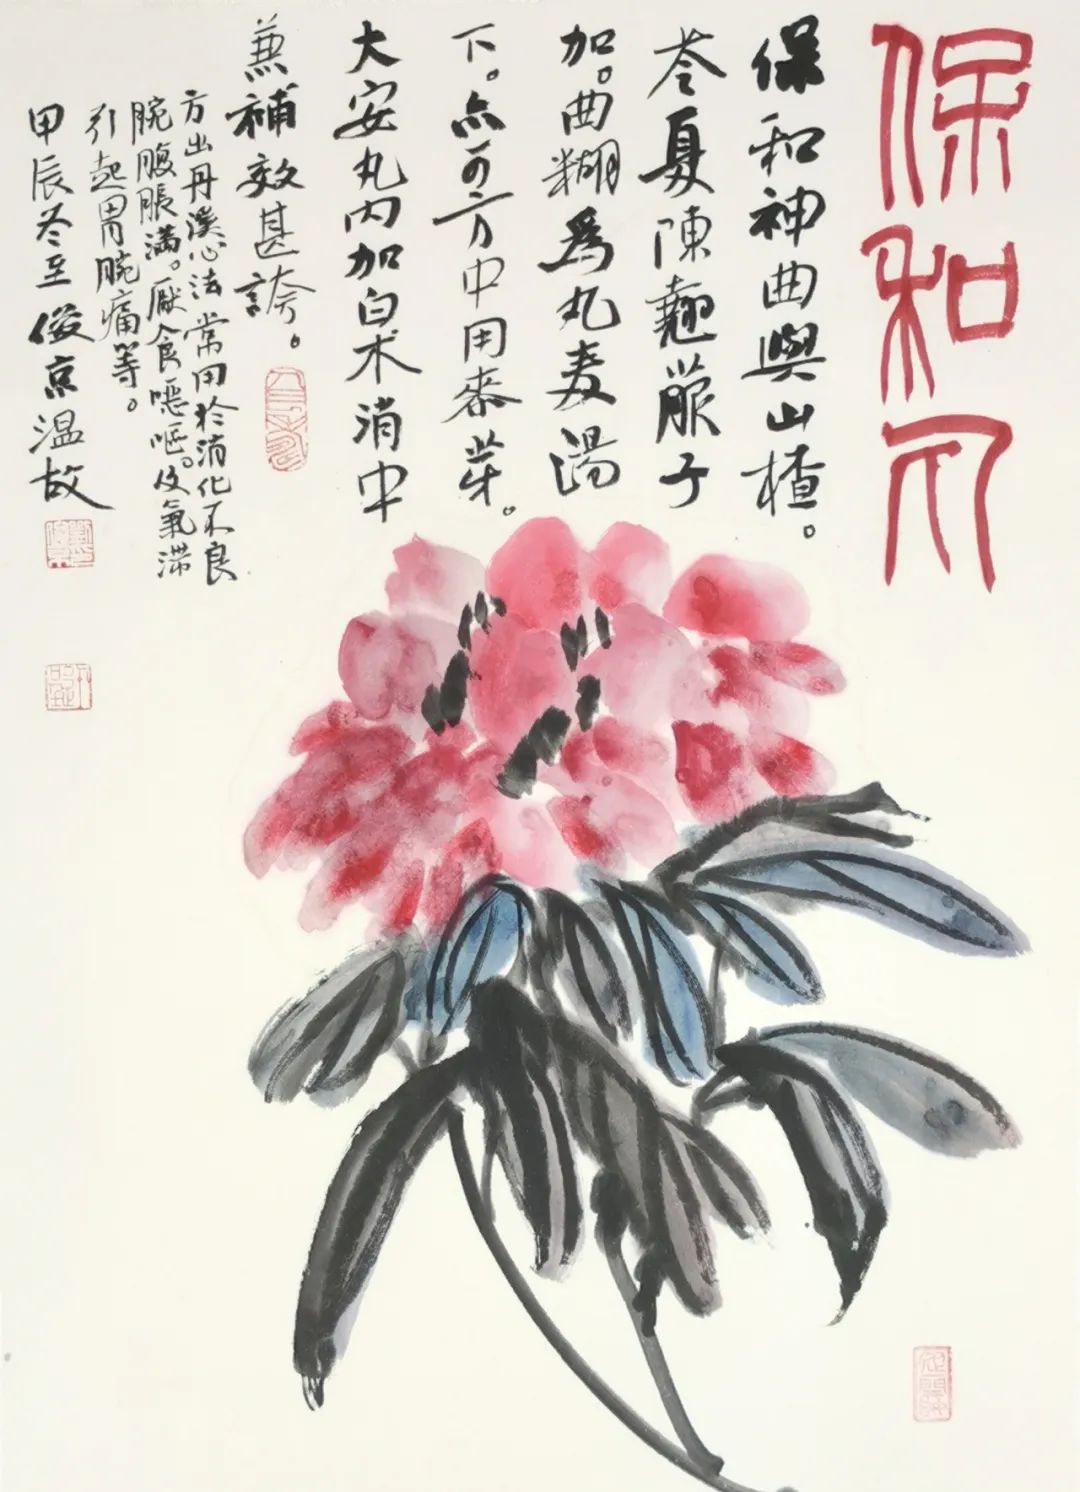 保和丸
保和神曲與山楂。
苓夏陳翹菔子
加。曲糊為丸麦湯
下。亦可方中用麥芽。
大安丸内加白术消中
兼補效甚誇。
方出丹溪心法常用於消化不良
脘腹脹满。厭食噁嘔。及氣滞
引起胃脘痛等。
甲辰冬至俊京温故